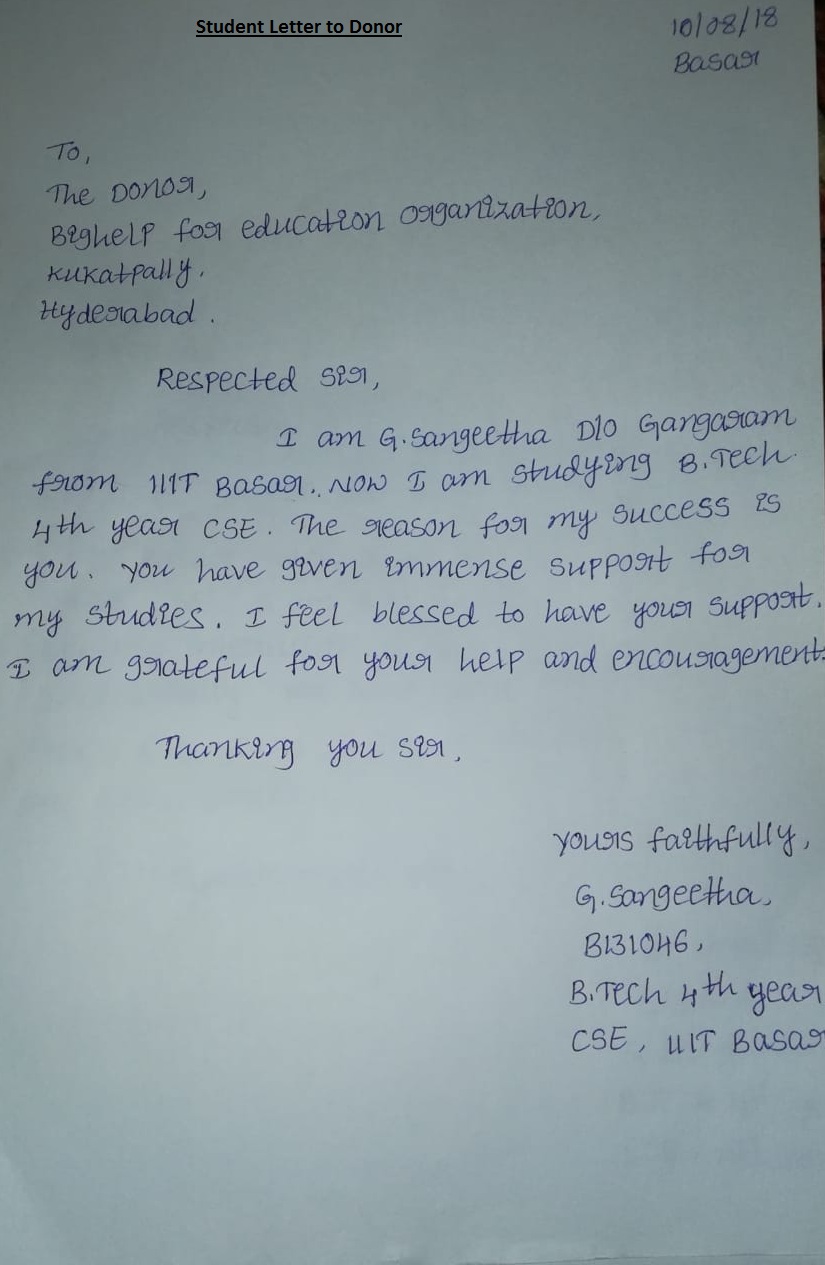 Student Letter to Donor
10/08/18
Basar
To,
The Donor,
Bighelp for education organization,
Kukatpally.
Hyderabad.
Respected Sir,
I am G.Sangeetha D/O Gangaram
from IIIT Basar. Now I am studying B.Tech.
4th year CSE. The reason for my success is
you. You have given immense support for
my studies. I feel blessed to have your support.
I am grateful for your help and encouragement.
Thanking you sir,
Yours faithfully,
G.Sangeetha,
B131046,
B.Tech 4th year
CSE, IIIT Basar